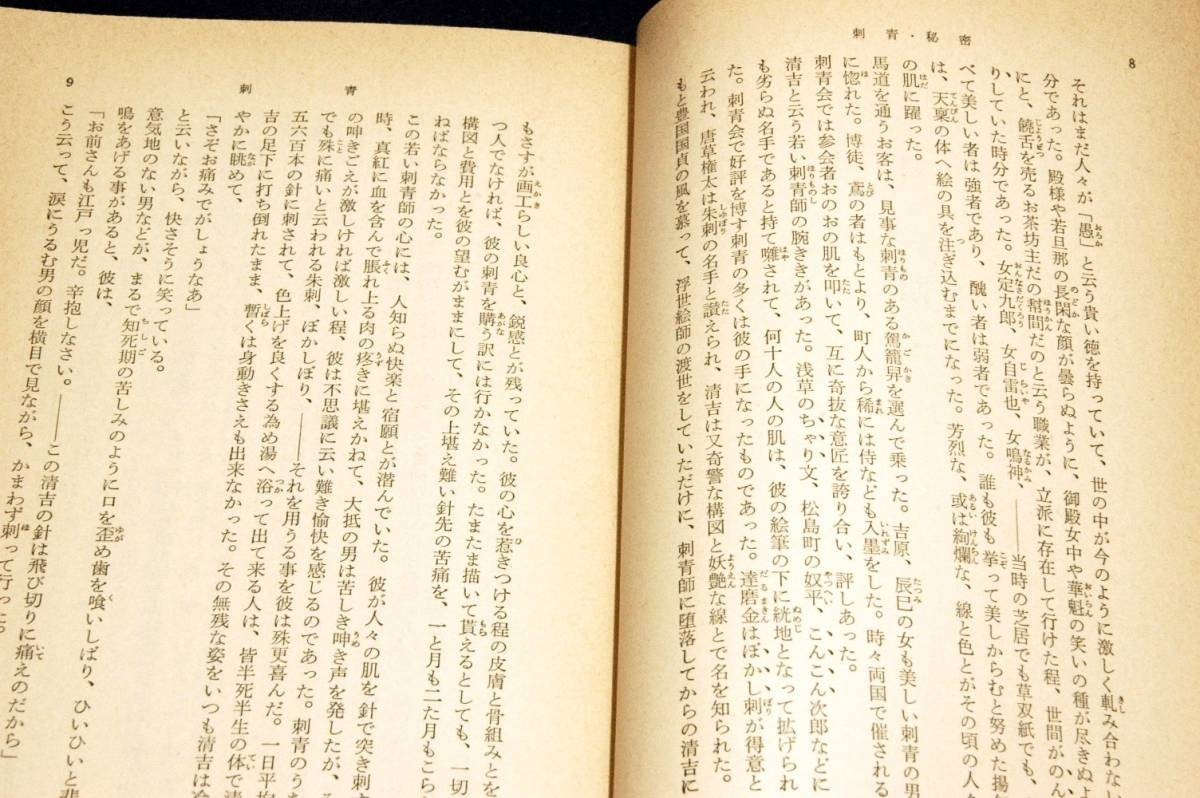 8
刺青・秘密
それはまだ人々が「愚」と云う貴い徳を持っていて、世の中が今のように激しく軋み合わない
分であった。殿様や若旦那の長閑な顔が曇らぬように、御殿女中や華魁の笑いの種が尽きぬよ
にと、饒舌を売るお茶坊主だの幇間だのと云う職業が、立派に存在して行けた程、世間がのん
りしていた時分であった。女定九郎、女自雷也、女鳴神、――当時の芝居でも草双紙でも、
べて美しい者は強者であり、醜い者は弱者であった。誰も彼も挙って美しからむと努めた揚
は、天稟の体へ絵の具を注ぎ込むまでになった。芳烈な、或は絢爛な、線と色とがその頃の人
の肌に躍った。
馬道を通うお客は、見事な刺青のある駕籠舁を選んで乗った。吉原、辰巳の女も美しい刺青の男
に惚れた。博徒、鳶の者はもとより、町人から稀には侍なども入墨をした。時々両国で催される
刺青会では参会者おのおの肌を叩いて、互に奇抜な意匠を誇り合い、評しあった。
清吉と云う若い刺青師の腕ききがあった。浅草のちゃり文、松島町の奴平、こんこん次郎などに
も劣らぬ名手であると持て囃されて、何十人の人の肌は、彼の絵筆の下に絖地となって拡げられ
た。刺青会で好評を博す刺青の多くは彼の手になったものであった。達磨金はぼかし刺が得意と
云われ、唐草権太は朱刺の名手と讃えられ、清吉は又奇警な構図と妖艶な線とで名を知られた。
もと豊国国貞の風を慕って、浮世絵師の渡世をしていただけに、刺青師に堕落してからの清吉に
9
刺青
もさすが画工らしい良心と、鋭感とが残っていた。彼の心を惹きつける程の皮膚と骨組みとを
つ人でなければ、彼の刺青を購う訳には行かなかった。たまたま描いて貰えるとしても、一切
構図と費用とを彼の望むがままにして、その上堪え難い針先の苦痛を、一と月も二た月もこら
ねばならなかった。
この若い刺青師の心には、人知らぬ快楽と宿願とが潜んでいた。彼が人々の肌を針で突き刺
時、真紅に血を含んで脹れ上る肉の疼きに堪えかねて、大抵の男は苦しき呻き声を発したが、
の呻きごえが激しければ激しい程、彼は不思議に云い難き愉快を感じるのであった。刺青のう
でも殊に痛いと云われる朱刺、ぼかしぼり、――それを用うる事を彼は殊更喜んだ。一日平
五六百本の針に刺されて、色上げを良くする為め湯へ浴って出て来る人は、皆半死半生の体で
吉の足下に打ち倒れたまま、暫くは身動きさえも出来なかった。その無残な姿をいつも清吉は
やかに眺めて、
「さぞお痛みでがしょうなあ」
と云いながら、快さそうに笑っている。
意気地のない男などが、まるで知死期の苦しみのように口を歪め歯を喰いしばり、ひいひいと悲
鳴をあげる事があると、彼は、
「お前さんも江戸っ児だ。辛抱しなさい。――この清吉の針は飛び切りに痛えのだから」
こう云って、涙にうるむ男の顔を横目で見ながら、かまわず刺って行った。